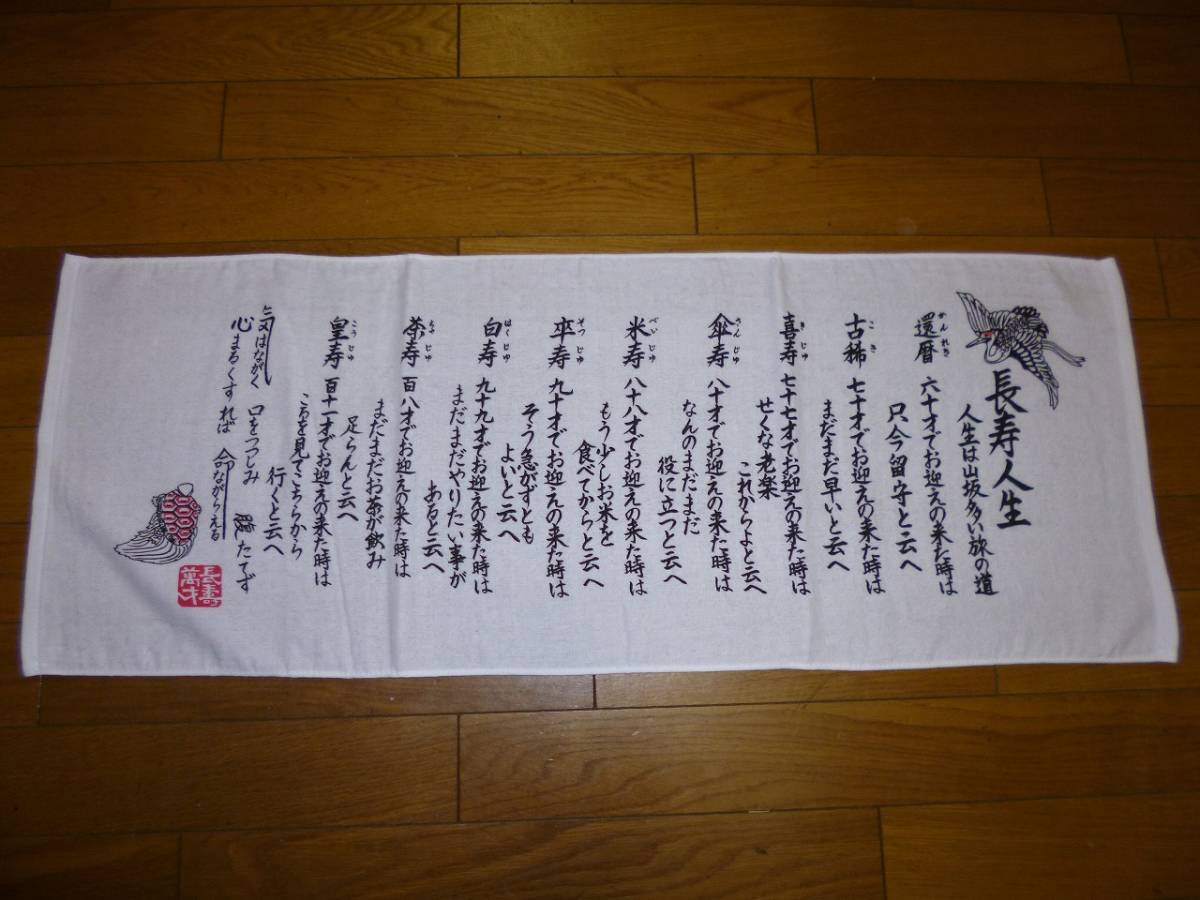 長寿人生
人生は山坂多い旅の道
還暦 六十才でお迎えの来た時は
かんれき
只今留守と云へ
古稀 七十才でお迎えの来た時は
こき
まだまだ早いと云へ
喜寿 七十七才でお迎えの来た時は
きじゅ
せくな老楽
これからよと云へ
傘寿 八十才でお迎えの来た時は
さんじゅ
なんのまだまだ
役に立つと云へ
米寿 八十八才でお迎えの来た時は
べいじゅ
もう少しお米を
食べてからと云へ
卒寿 九十才でお迎えの来た時は
そつじゅ
そう急がずとも
よいと云へ
白寿 九十九才でお迎えの来た時は
はくじゅ
まだまだやりたい事が
あると云へ
茶寿 百八才でお迎えの来た時は
ちゃじゅ
まだまだお茶が飲み
足らんと云へ
皇寿 百十一才でお迎えの来た時は
こうじゅ
ころを見てこちらから
行くと云へ
気はながく 口をつつしみ たてず
心まるくすれば 命ながらえる
長寿
萬才